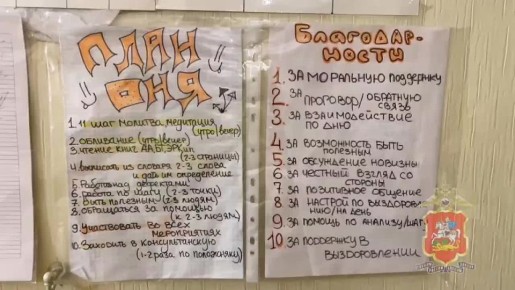 ПЛАН
ДНЯ
1. 11 шаг молитва, медитация
(утро/вечер)
2. обливание (утро/вечер)
3. чтение книг АА, БГ, ЭРкип
(2-3 страницы)
4. выписать из словаря 2-3 слова
и дать им определение
5. Работа над дефектами
6. работа по шагу (2-3 точки)
7. Быть полезным (2-3 людям)
8. обращаться за помощью
(к 2-3 людям)
9. Участвовать во всех
мероприятиях
10. Заходить в консультанскую
(1-2 раза по положняку)
БЛАГОДАР-
НОСТИ
1. ЗА МОРАЛЬНУЮ ПОДДЕРЖКУ
2. ЗА ПРОГОВОР/ОБРАТНУЮ
СВЯЗЬ
3. ЗА ВЗАИМОДЕЙСТВИЕ
ПО ДНЮ
4. ЗА ВОЗМОЖНОСТЬ БЫТЬ
ПОЛЕЗНЫМ
5. ЗА ОБСУЖДЕНИЕ НОВИЗНЫ
6. ЗА ЧЕСТНЫЙ ВЗГЛЯД СО
СТОРОНЫ
7. ЗА ПОЗИТИВНОЕ ОБЩЕНИЕ
8. ЗА НАСТРОЙ ПО ВЫЗДОРОВ
ЛЕНИЮ/НА ДЕНЬ
9. ЗА ПОМОЩЬ ПО АНАЛИЗУ/ШАГ
10. ЗА ПОДДЕРЖКУ В
ВЫЗДОРОВЛЕНИИ